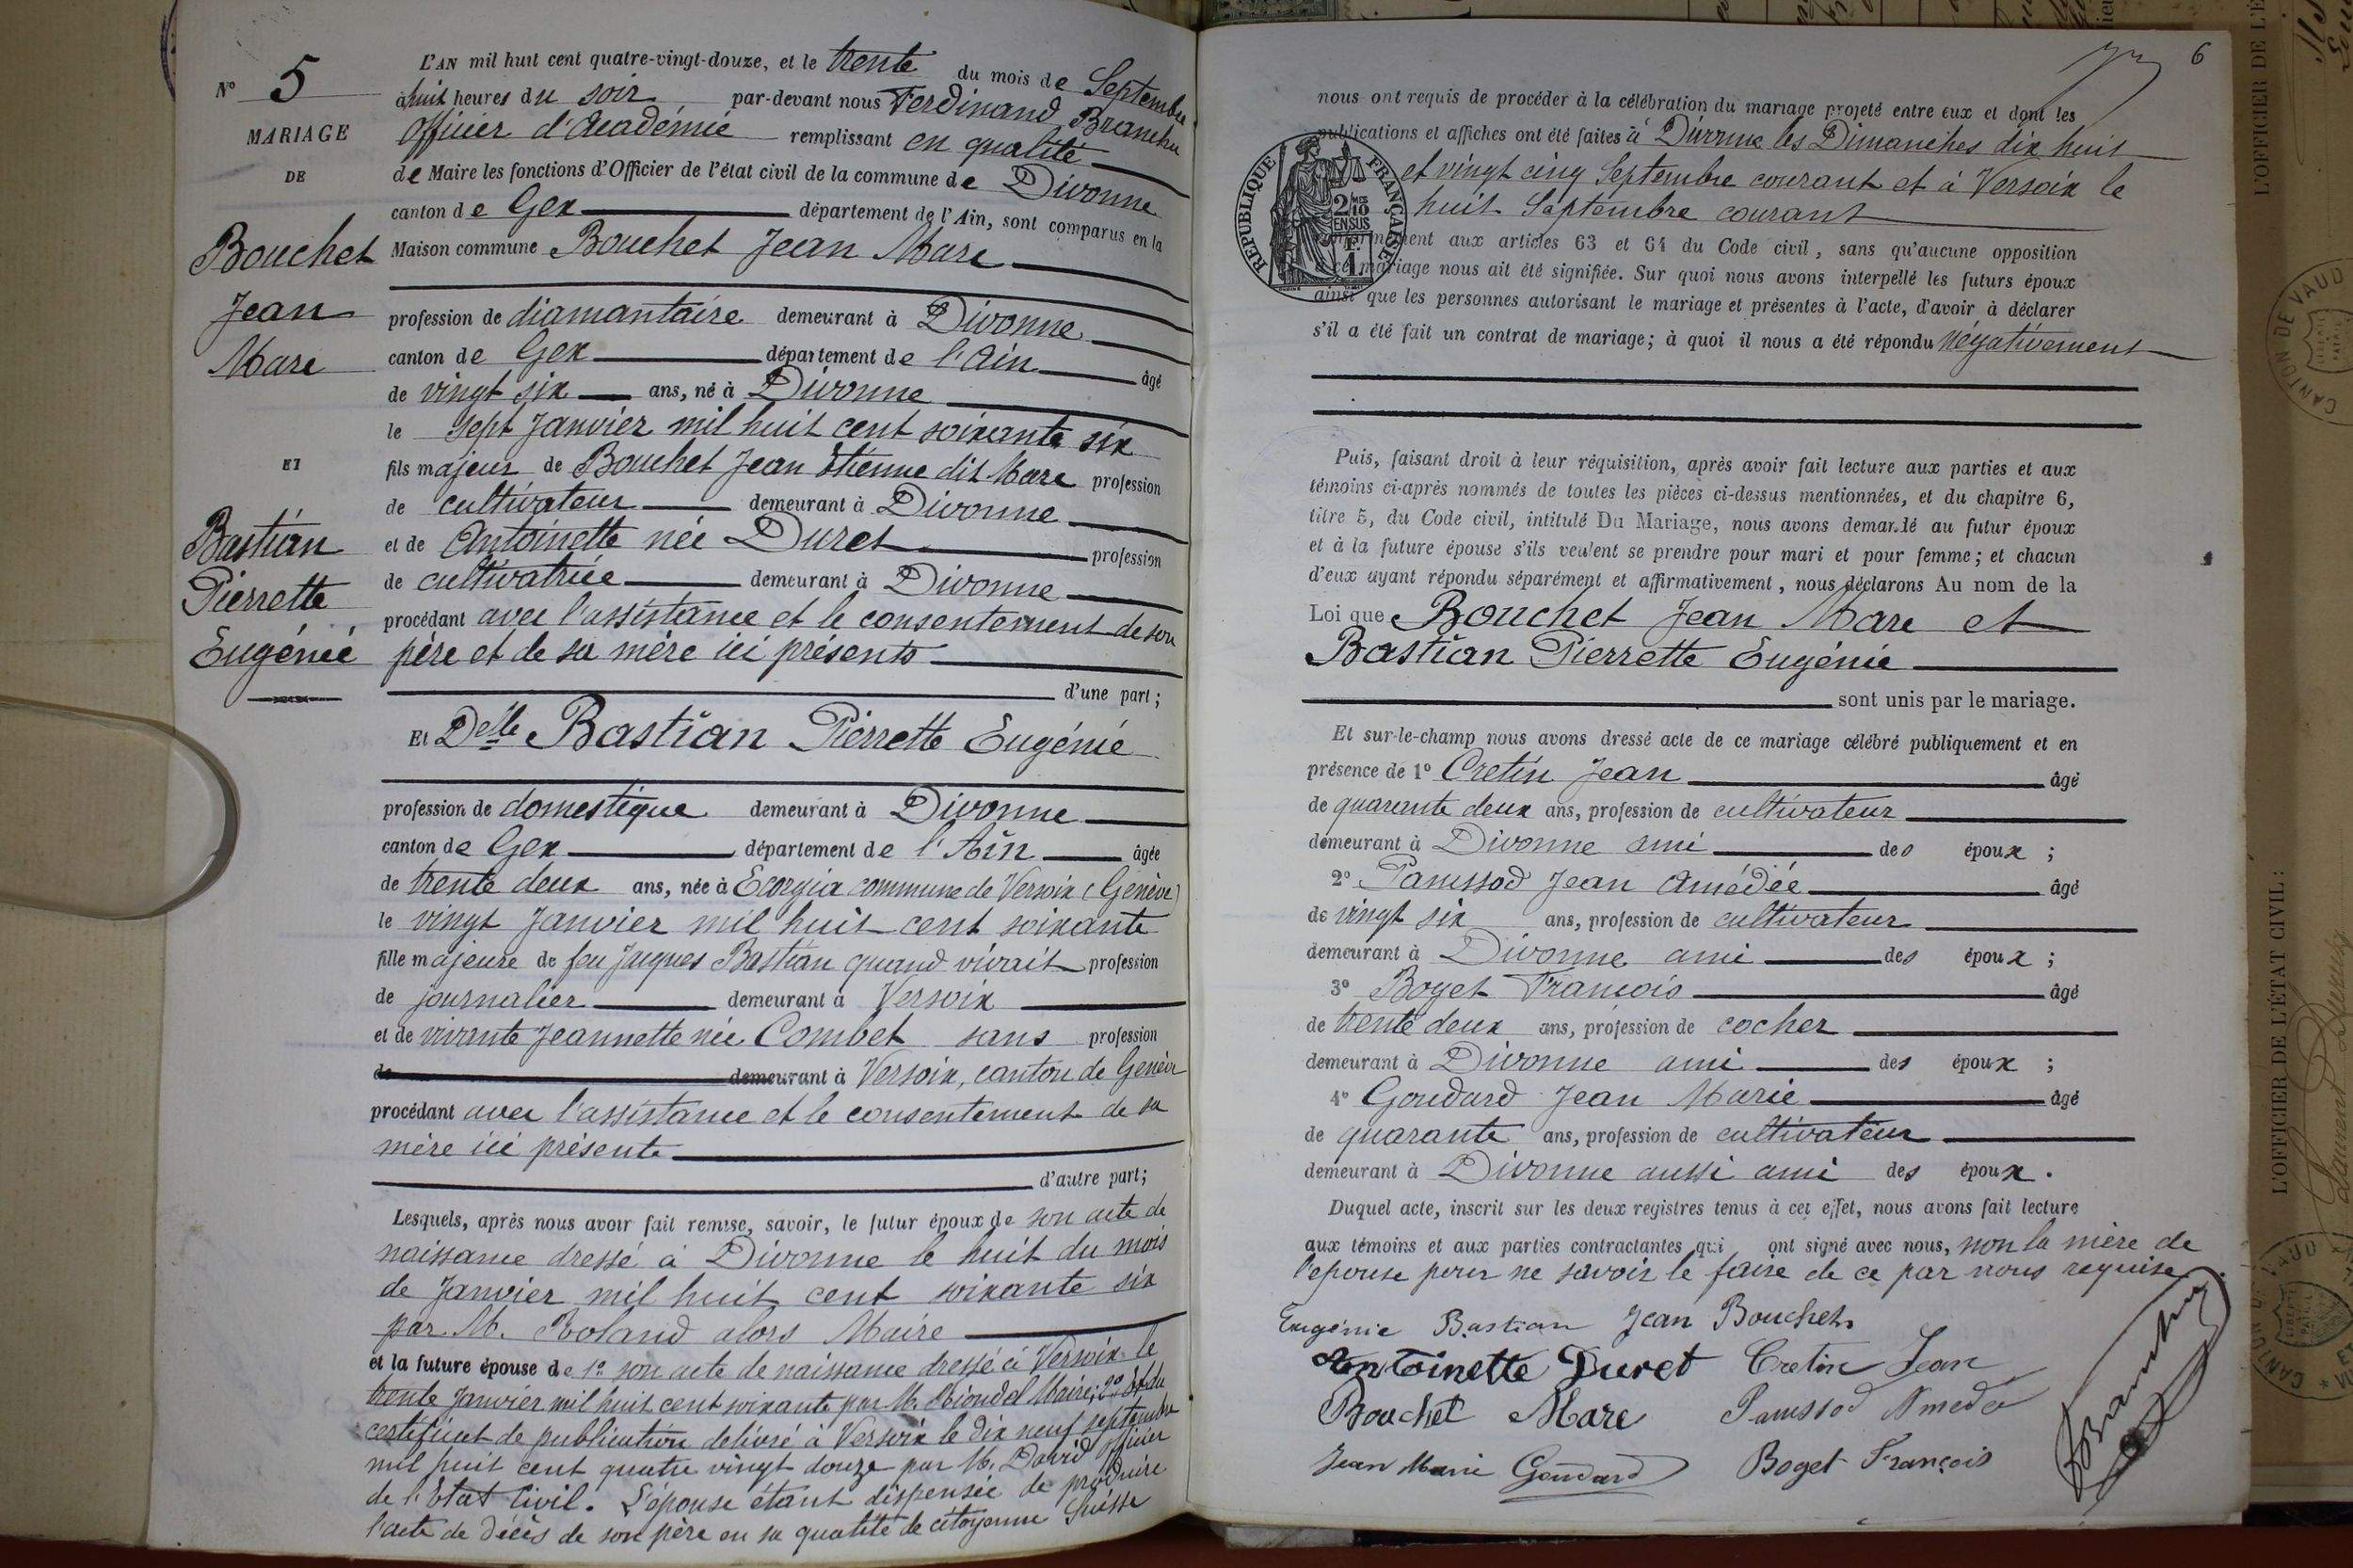 N° 5
MARIAGE
DE
Bouchet
Jean
Marc
ET
Bastian
Pierrette
Eugénie
L'AN mil huit cent quatre-vingt-douze, et le trente du mois de Septembre
à huit heures du soir par-devant nous Ferdinand Branchu
Officier d'Académie remplissant en qualité
de Maire les fonctions d'Officier de l'état civil de la commune de Divonne
canton de Gex département de l'Ain, sont comparus en la
Maison commune Bouchet Jean Marc
profession de diamantaire demeurant à Divonne
canton de Gex département de l'Ain âgé
de vingt six ans, né à Divonne
le sept Janvier mil huit cent soixante six
fils majeur de Bouchet Jean Etienne dit Marc profession
de cultivateur demeurant à Divonne
et de Antoinette née Duret profession
de cultivatrice demeurant à Divonne
procédant avec l'assistance et le consentement de son
père et de sa mère ici présents
d'une part;
Et Delle Bastian Pierrette Eugénie
profession de domestique demeurant à Divonne
canton de Gex département de l'Ain âgée
de trente deux ans, née à Ecogia commune de Versoix (Genève)
le vingt Janvier mil huit cent soixante
fille majeure de feu Jaques Bastian quand vivait profession
de journalier demeurant à Versoix
et de vivante Jeannette née Combet sans profession
de demeurant à Versoix, canton de Genève
procédant avec l'assistance et le consentement de sa
mère ici présente
d'autre part;
Lesquels, après nous avoir fait remise, savoir, le futur époux de son acte de
naissance dressé à Divonne le huit du mois
de Janvier mil huit cent soixante six
par M. Roland alors Maire
et la future épouse de 1° son acte de naissance dressé à Versoix le
trente Janvier mil huit cent soixante par M. Maire; 2°
certificat de publication délivré à Versoix le dix neuf septembre
mil huit cent quatre vingt douze par M. David officier
de l'Etat Civil. L'épouse étant dispensée de produire
l'acte de décès de son père en sa qualité de citoyenne Suisse
6
nous ont requis de procéder à la célébration du mariage projeté entre eux et dont les
publications et affiches ont été faites à Divonne les Dimanches dix huit
et vingt cinq Septembre courant et à Versoix le
huit Septembre courant
conformément aux articles 63 et 64 du Code civil, sans qu'aucune opposition
à ce mariage nous ait été signifiée. Sur quoi nous avons interpellé les futurs époux
ainsi que les personnes autorisant le mariage et présentes à l'acte, d'avoir à déclarer
s'il a été fait un contrat de mariage; à quoi il nous a été répondu négativement
RÉPUBLIQUE FRANÇAISE
2/10
EN SUS
1
Puis, faisant droit à leur réquisition, après avoir fait lecture aux parties et aux
témoins ci-après nommés de toutes les pièces ci-dessus mentionnées, et du chapitre 6,
titre 5, du Code civil, intitulé Du Mariage, nous avons demandé au futur époux
et à la future épouse s'ils veulent se prendre pour mari et pour femme; et chacun
d'eux ayant répondu séparément et affirmativement, nous déclarons Au nom de la
Loi que Bouchet Jean Marc et
Bastian Pierrette Eugénie
sont unis par le mariage.
Et sur-le-champ nous avons dressé acte de ce mariage célébré publiquement et en
présence de 1° Cretin Jean âgé
de quarante deux ans, profession de cultivateur
demeurant à Divonne ami des époux;
2° Panissod Jean Amédée âgé
de vingt six ans, profession de cultivateur
demeurant à Divonne ami des époux;
3° Boget François âgé
de trente deux ans, profession de cocher
demeurant à Divonne ami des époux;
4° Goudard Jean Marie âgé
de quarante ans, profession de cultivateur
demeurant à Divonne aussi ami des époux.
Duquel acte, inscrit sur les deux registres tenus à cet effet, nous avons fait lecture
aux témoins et aux parties contractantes qui ont signé avec nous, non la mère de
l'épouse pour ne savoir le faire de ce par nous requise.
Eugénie Bastian Jean Bouchet
Antoinette Duret Cretin Jean
Bouchet Marc Panissod Amédé
Jean Marie Goudard Boget François
Branchu
L'OFFICIER DE L'É
CANTON DE VAUD
L'OFFICIER DE L'ÉTAT CIVIL :